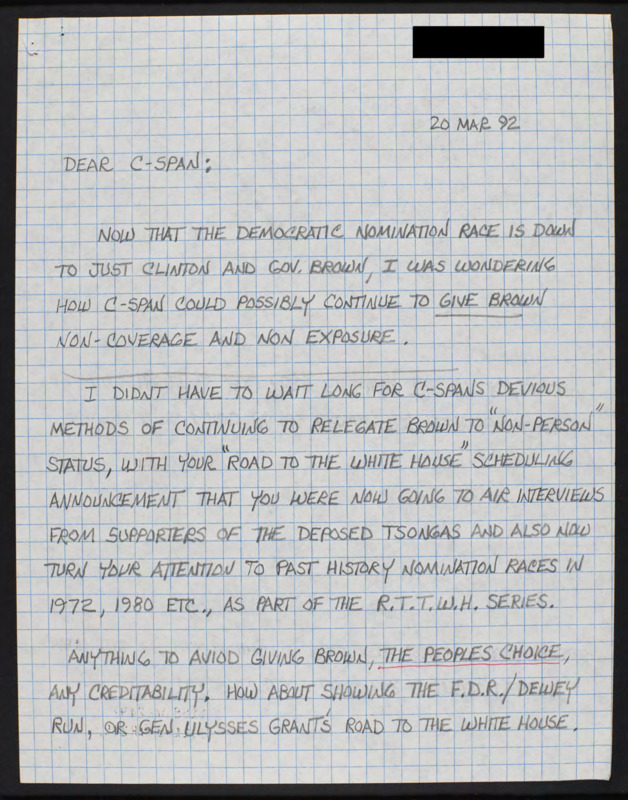 20 MAR 92
DEAR C-SPAN:
NOW THAT THE DEMOCRATIC NOMINATION RACE IS DOWN
TO JUST CLINTON AND GOV. BROWN, I WAS WONDERING
HOW C-SPAN COULD POSSIBLY CONTINUE TO GIVE BROWN
NON-COVERAGE AND NON EXPOSURE.
I DIDNT HAVE TO WAIT LONG FOR C-SPANS DEVIOUS
METHODS OF CONTINUING TO RELEGATE BROWN TO "NON-PERSON"
STATUS, WITH YOUR "ROAD TO THE WHITE HOUSE" SCHEDULING
ANNOUNCEMENT THAT YOU WERE NOW GOING TO AIR INTERVIEWS
FROM SUPPORTERS OF THE DEPOSED TSONGAS AND ALSO NOW
TURN YOUR ATTENTION TO PAST HISTORY NOMINATION RACES IN
1972, 1980 ETC., AS PART OF THE R.T.T.W.H. SERIES.
ANYTHING TO AVIOD GIVING BROWN, THE PEOPLES CHOICE,
ANY CREDITABILITY. HOW ABOUT SHOWING THE F.D.R./DEWEY
RUN, OR GEN. ULYSSES GRANT'S ROAD TO THE WHITE HOUSE.